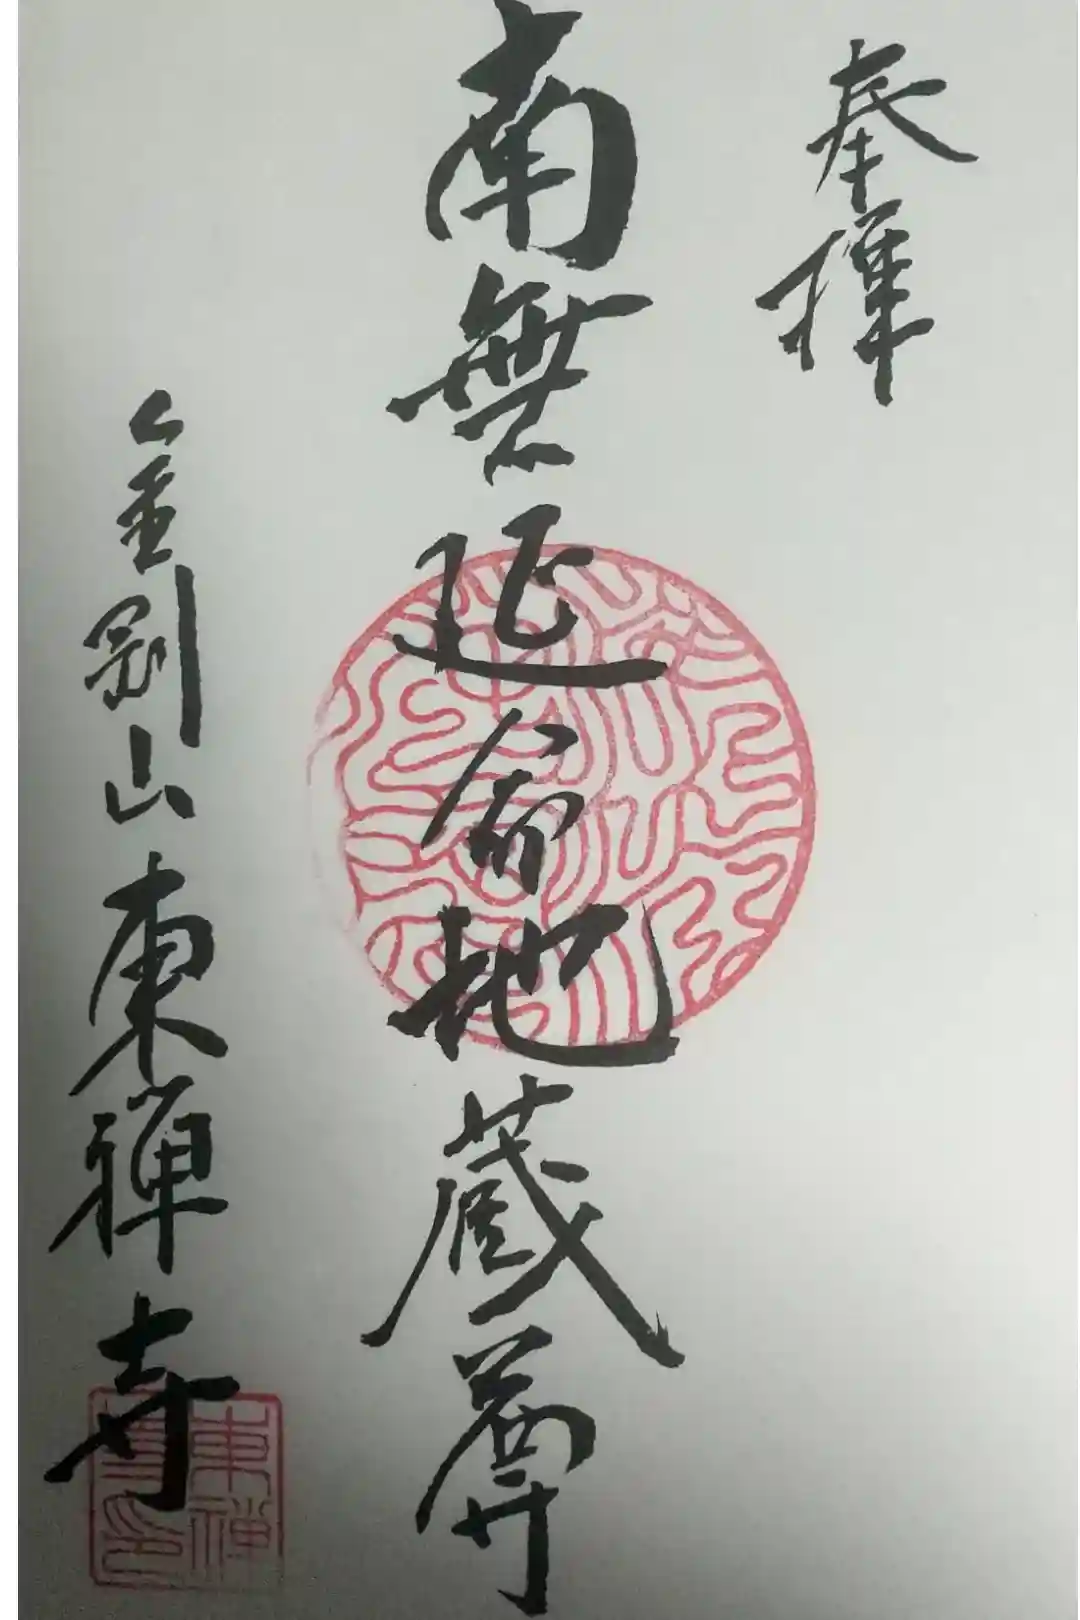 奉拝
南無延命地蔵尊
金剛山東禅寺
東禅寺印